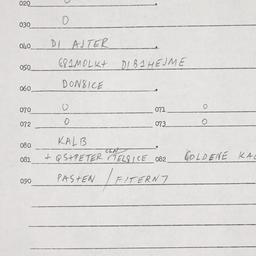 020 0
030 0
040 DI AJTER
050 681MOLK+ DIB1HEJME
060 DONBICE
070 0 071 0
072 0 073 0
080 KALB
081 + QS+PETER MELBICE 082 GOLDENE KAL
090 PASTEN / FITERN7